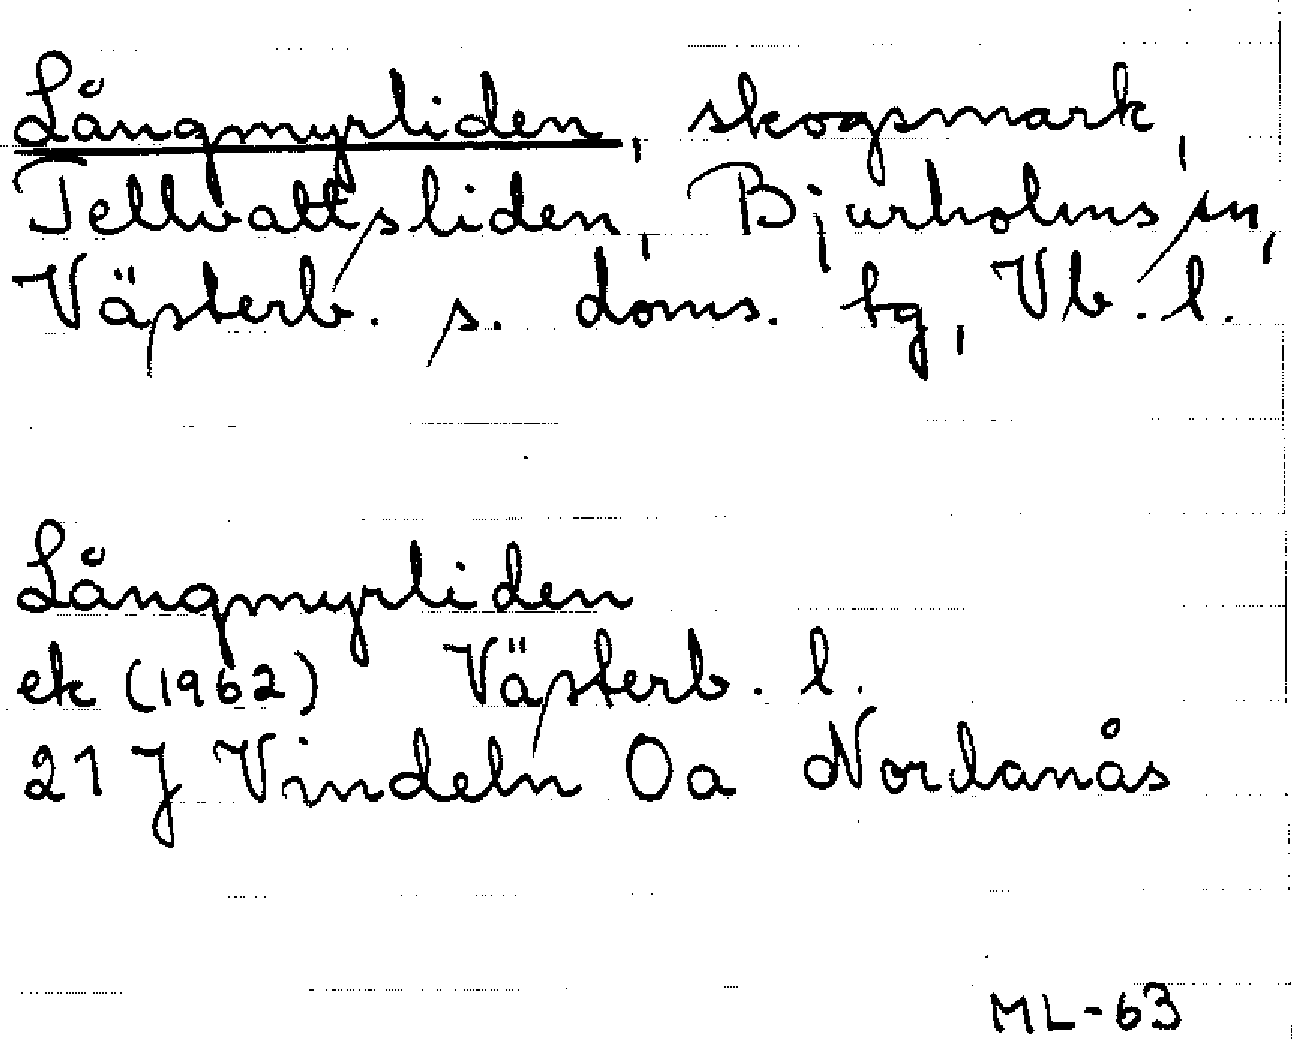 Långmyrliden, skogsmark,
Tellvattsliden, Bjurholms sn,
Västerb. s. doms. tg, Vb. l.
Långmyrliden
ek (1962) Västerb. l.
21 J Vindeln 0a Nordanås
ML-63